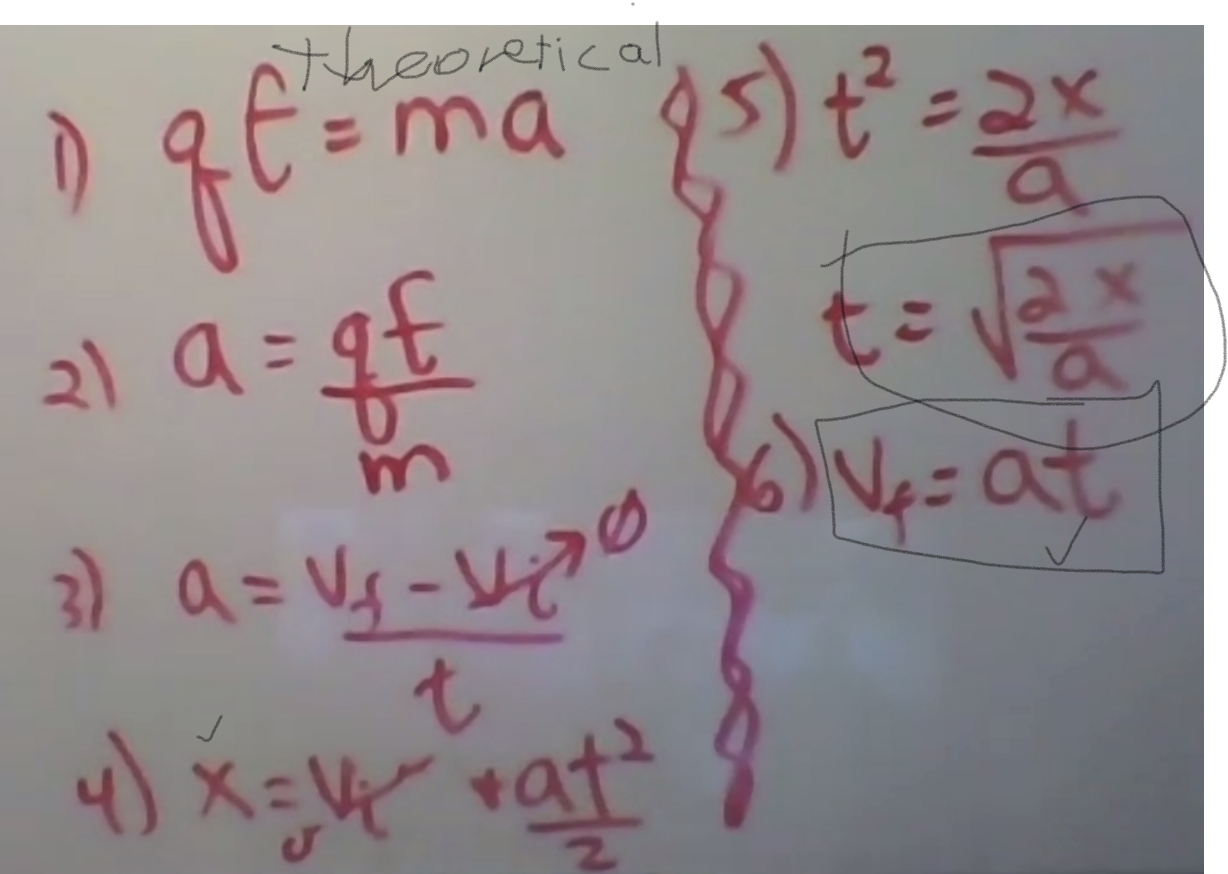 theoretical
1) qE = ma
2) a = qE/m
3) a = (Vf - Vi)/t → 0
4) x = Vi + at²/2
5) t² = 2x/a
t = √(2x/a)
6) Vf = at